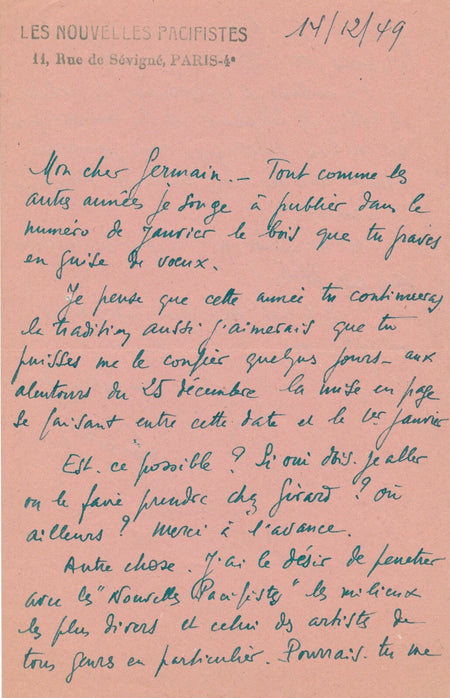 LES NOUVELLES PACIFISTES
11, Rue de Sévigné, PARIS-4e
14/12/49
Mon cher Germain. – Tout comme les
autres années je songe à publier dans le
numéro de Janvier le bois que tu graves
en guise de vœux.
Je pense que cette année tu continueras
la tradition aussi j'aimerais que tu
puisses me le confier quelques jours – aux
alentours du 25 décembre la mise en page
se faisant entre cette date et le 1er janvier
Est-ce possible ? Si oui dois-je aller
ou le faire prendre chez Girard ? ou
ailleurs ? Merci à l'avance.
Autre chose. J'ai le désir de pénétrer
avec les "Nouvelles Pacifistes" les milieux
les plus divers et celui des artistes de
tous genres en particulier. Pourrais-tu me